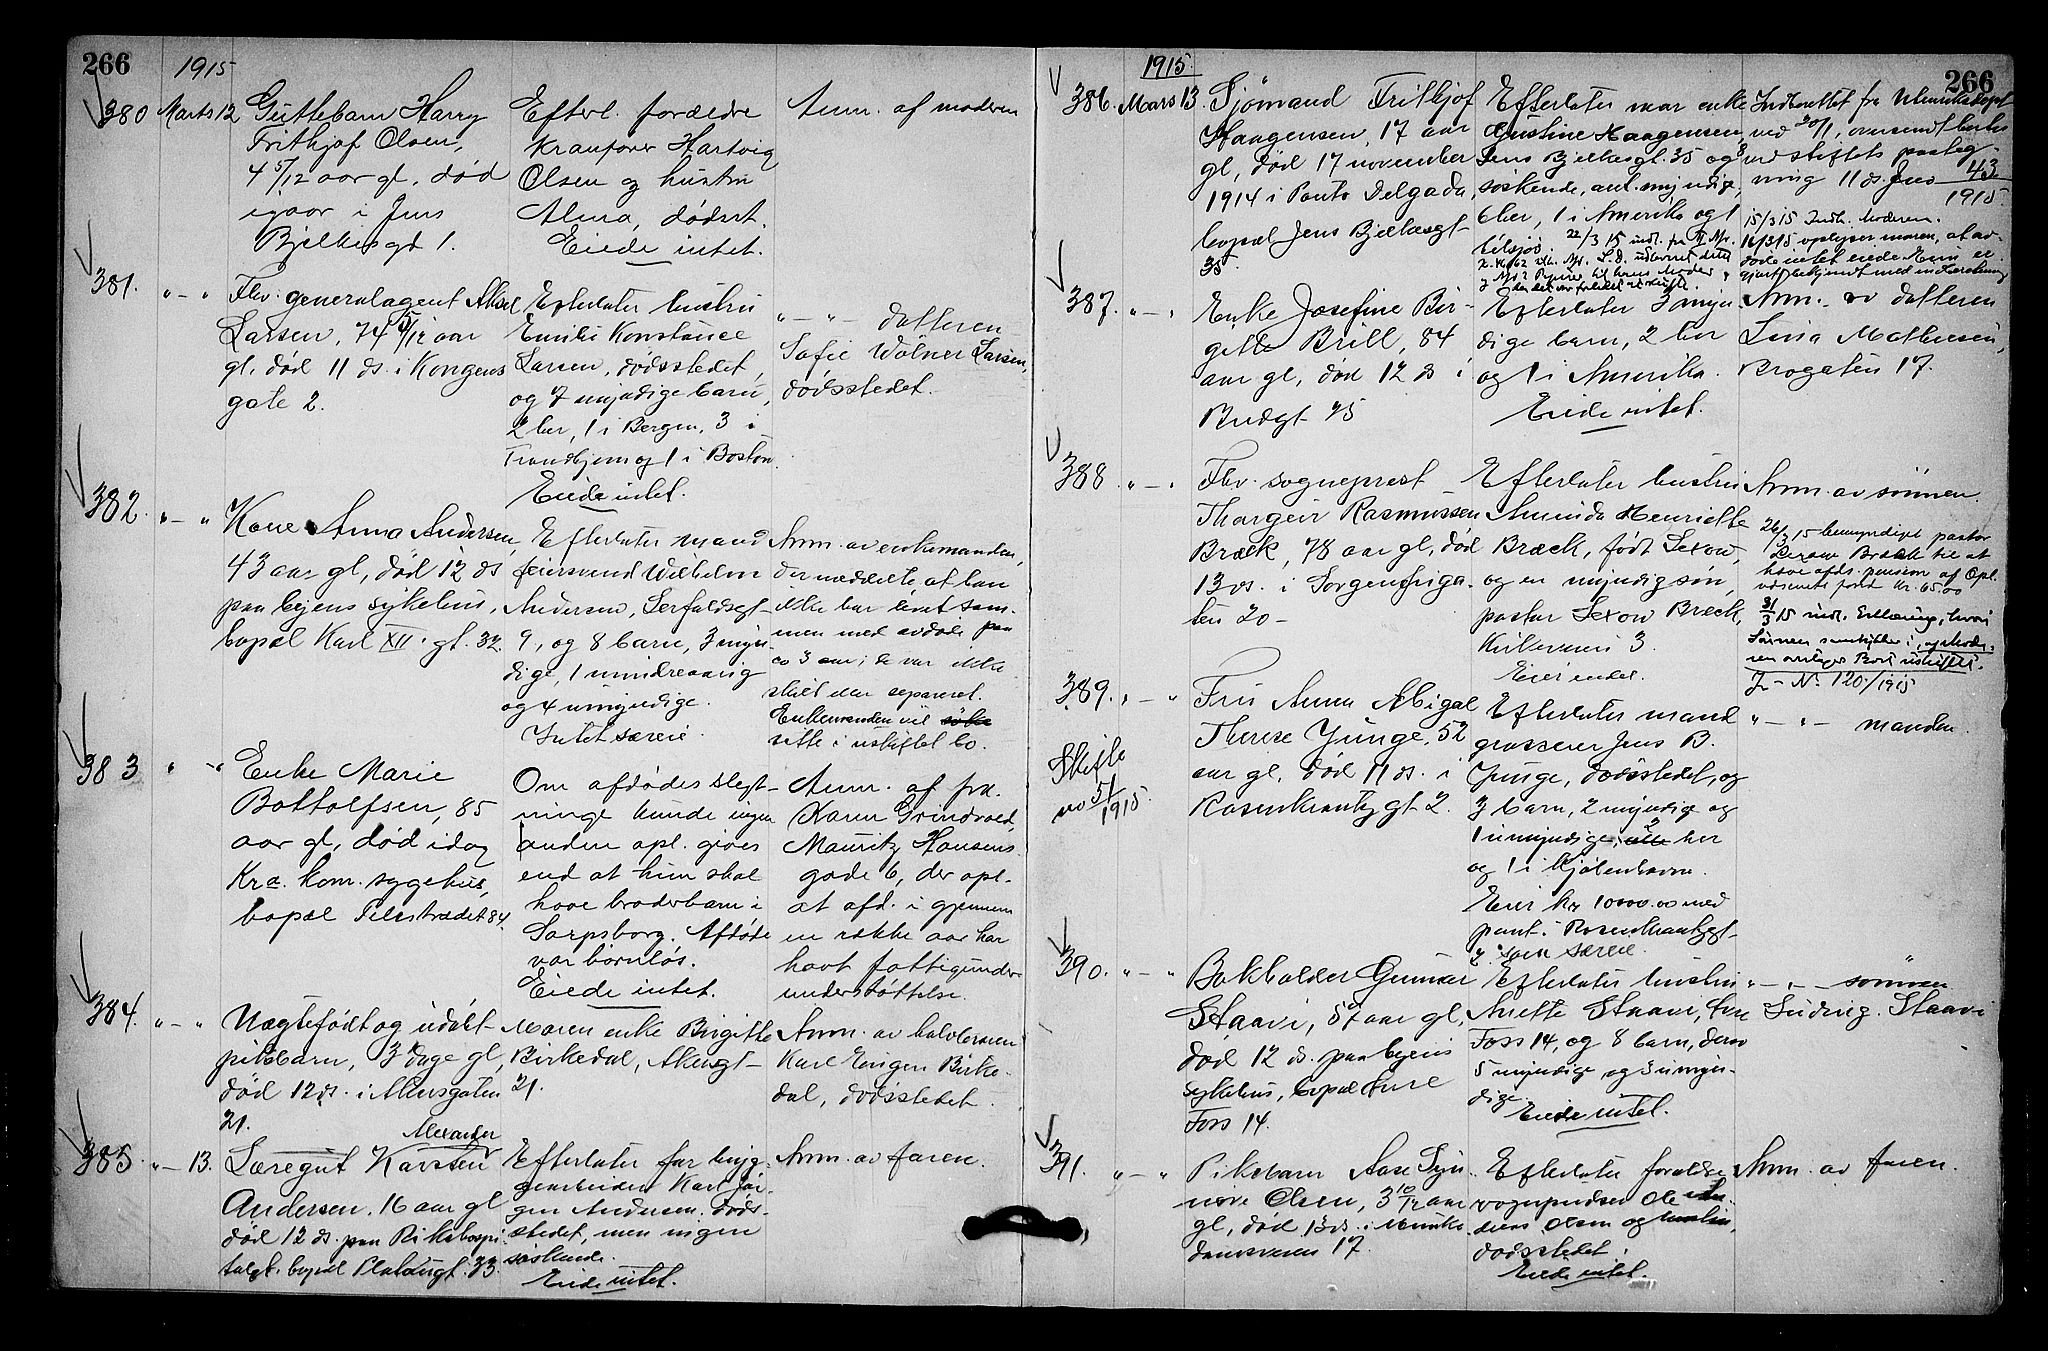 266
1915
380 Marts 12 Guttebarn Harry
Frithjof Olsen,
4 5/12 aar gl, død
igaar i Jens
Bjelkes gt 1.
Efterl. forældre
kranfører Hartvig
Olsen og hustru
Alma, dødsst.
Eiede intet.
Anm. af moderen
381. " — " Fhv. generalagent Aksel
Larsen, 74 5/12 aar
gl, død 11 ds. i Kongens
gate 2.
Efterlater hustru
Emilie Konstance
Larsen, dødsstedet,
og 7 myndige barn,
2 her, 1 i Bergen, 3 i
Trondhjem og 1 i Boston
Eiede intet.
" — " — datteren
Sofie Wølner Larsen,
dødsstedet.
382. " — " Kone Anna Andersen,
43 aar gl, død 12 ds
paa byens sykehus,
bopæl Karl XII. gt. 32.
Efterlater mand
feiersvend Wilhelm
Andersen, Herfaldsgt
9, og 8 barn, 3 myn-
dige, 1 mindreaarig
og 4 umyndige.
Intet særeie.
Anm. av enkemanden,
der meddelte, at han
ikke har levet sam-
men med avdøde paa
ca 3 aar; de var ikke
skilt eller separeret.
Enkemanden vil
sitte i uskiftet bo.
383 " — " Enke Marie
Bottolfsen, 85
aar gl, død idag
Kra. kom. sygehus,
bopæl Pilestrædet 84.
Om afdødes slegt-
ninge kunde ingen
anden opl. gives
end at hun skal
have broderbarn i
Sarpsborg. Afdøde
var barnløs.
Eiede intet.
Anm. af frk.
Karen Grindvold,
Mauritz Hansens
gade 6, der opl.
at afd. i gjennem
en række aar har
havt fattigunder-
understøttelse.
384. " — " Uægtefødt og udøbt
pikebarn, 3 dage gl,
død 12 ds. i Akersgaten
21.
Moren enke Birgitte
Birkedal, Akersgt
21.
Anm. av halvbroren
Karl Eugen Birke-
dal, dødsstedet.
385. " — 13. Læregut Karsten
Alexander
Andersen, 16 aar gl
død 12 ds. paa Rikshospi-
talet. bopæl Platousgt. 33.
Efterlater far byg-
gearbeider Karl Jør-
gen Andersen, døds-
stedet, men ingen
søskende.
Eiede intet.
Anm. av faren.
266
1915.
386. Mars 13. Sjömand Frithjof
Haagensen, 17 aar
gl, død 17 november
1914 i Ponto Delgada,
bopæl Jens Bjelkesgt
35.
Efterlater mor enke
Gustine Haagensen,
Jens Bjelkesgt. 35 og 8
søskende, alle myndige,
6 her, 1 i Amerika og 1
tilsjøs.
Indberettet fra
ved
ved stiftets paateg-
ning 11 ds. Jno 43
1915.
15/3 15 Indk. Moderen.
16/3 15 oplyser moren, at av-
døde intet eiede Hun er
gjort bekjendt med indberetning
387. " — " Enke Josefine Bir-
gitte Brill, 84
aar gl, død 12 ds i
Bredgt 25
Efterlater 3 myn
dige barn, 2 her
og 1 i Amerika.
Eiede intet.
Anm. av datteren
Lina Mathiesen,
Brogaten 17.
388 " — " Fhv. sogneprest
Thorgeir Rasmussen
Bræk, 78 aar gl, død
13 ds. i Sorgenfriga-
ten 20 —
Efterlater hustru
Aminda Henriette
Bræck, født Sexow,
og en myndig søn,
pastor Sexow Breck,
Kirkeveien 3.
Eier endel.
Anm. av sønnen.
26/3 15 bemyndiget pastor
Sexow Bræck til at
hæve afds. pension af Opl.
utsenets fond Kr. 65.00
31/3 15 indl. Erklæring, hvori
Sønnen samtykker i, at Mode-
ren overtager Boet uskiftet.
J— No 120/1915
389. " — " Fru Anna Abigal
Therese Junge, 52
aar gl, død 11 ds. i
Rosenkrantz gt 2.
Skifte
no 51/1915.
Efterlater mand
grosserer Jens B.
Junge, dødsstedet, og
3 barn, 2 myndige og
1 umyndige, her
og 1 i Kjøbenhavn.
Eier Kr 10000.00 med
pant i Rosenkrantzgt
2 som særeie.
" — " — manden.
390. " — " Bokholder Gunnar
Staavi, 57 aar gl,
død 12 ds. paa byens
sykehus, bopæl Øvre
Foss 14.
Efterlater hustru
Anette Staavi, Øvre
Foss 14, og 8 barn, derav
5 myndige og 3 umyn-
dige.
Eiede intet.
" — " — sønnen
Ludvig Staavi
391. " — " Pikebarn Aase Syn
nøve Olsen, 3 10/12 aar
gl, død 13 ds. i Munke
damsveien 17.
Efterlater forældre
vognpudser Ole
Olsen og hustru,
dødsstedet.
Eiede intet.
Anm. av faren.